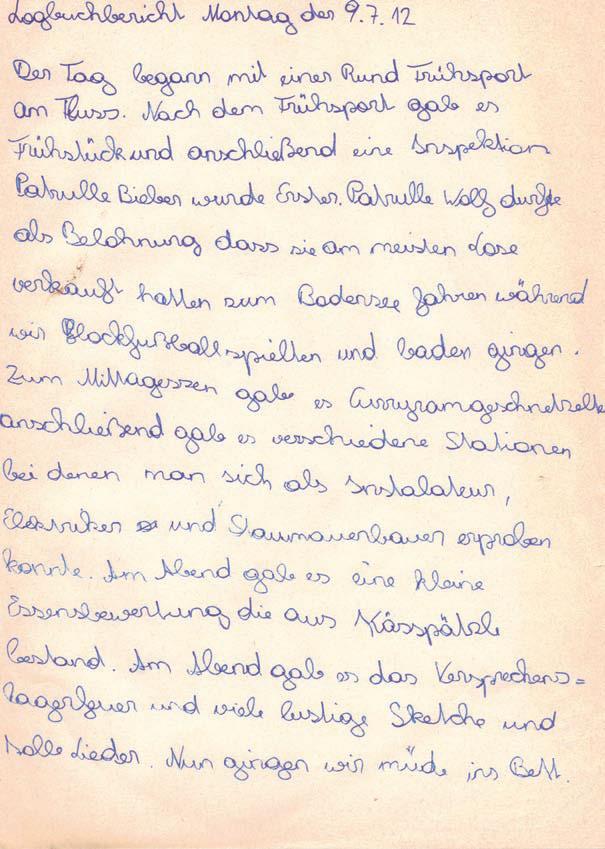 Logbuchbericht Montag der 9.7.12
Der Tag begann mit einer Rund Frühsport
am Fluss. Nach dem Frühsport gab es
Frühstück und anschließend eine Inspektion
Patrulle Bieber wurde Erster. Patrulle Wolf durfte
als Belohnung dass sie am meisten Lose
verkauft hatten zum Badersee fahren während
wir Blockfußball spielten und baden gingen.
Zum Mittagessen gab es Curryramgeschnetzelte
anschließend gab es verschiedene Stationen
bei denen man sich als Instalateur,
Elektriker und Staumauerbauer erproben
konnte. Am Abend gab es eine kleine
Essensbewertung die aus Kässpätzle
bestand. Am Abend gab es das Versprechens=
laagerfeuer und viele lustige Sketche und
tolle Lieder. Nun gingen wir müde ins Bett.